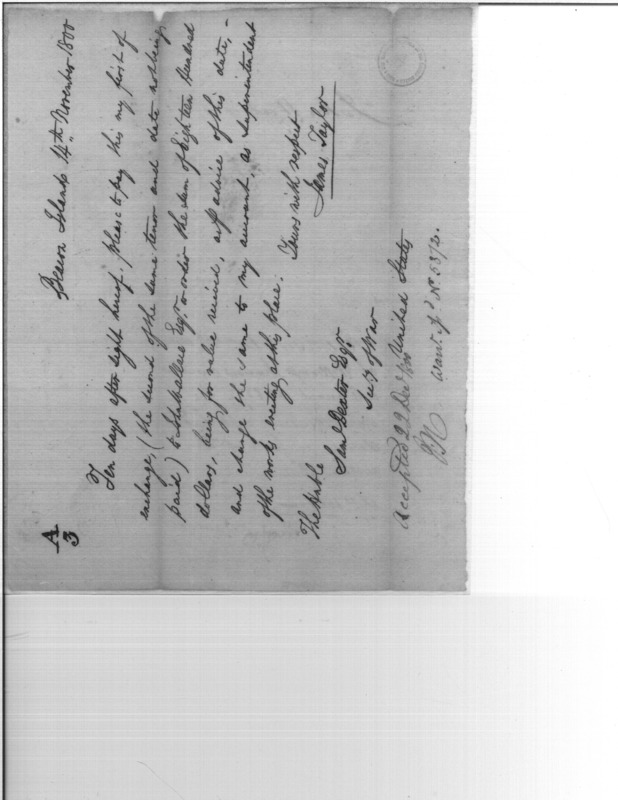 A/3
Beacon Island 14th November 1800
Ten days after sight hereof, please to pay this my first of
exchange, (the second of the same tenor and date nothing
paid) to Wallace Esqr. or order the sum of Eighteen hundred
dollars, being for value received, as p advice of this date, –
and charge the same to my account, as Superintendent
of the works erecting at this place. Yours with respect
James Taylor
The Honble
Saml Dexter Esqr.
Secy of War
Accepted 22 Decr United States
Want. pd. No. 5372.